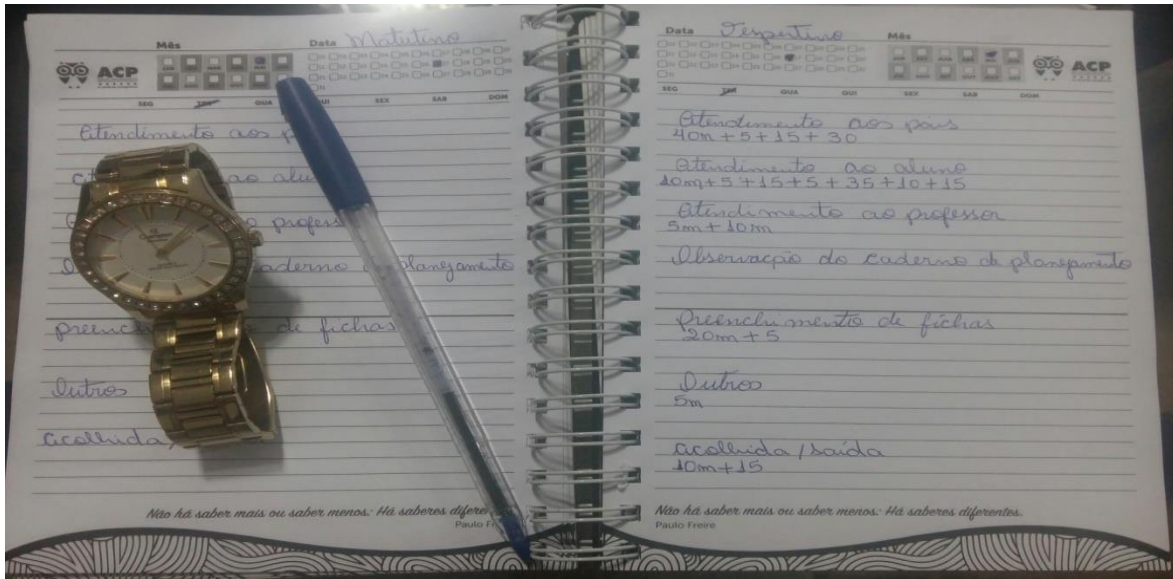 Mês
Data Matutino
ACP
SEG TER QUA QUI SEX SAB DOM
Atendimento aos p
ao alu
o profess
caderno planejamento
preench de fichas
Outros
acolhida/
Não há saber mais ou saber menos: Há saberes difere
Paulo Fr
Data Vespertino
Mês
ACP
SEG TER QUA QUI SEX SAB DOM
Atendimento aos pais
40m + 5 + 15 + 30
Atendimento ao aluno
10m + 5 + 15 + 5 + 35 + 10 + 15
Atendimento ao professor
5m + 10m
Observação do caderno de planejamento
Preenchimento de fichas
20m + 5
Outros
5m
acolhida / saída
10m + 15
Não há saber mais ou saber menos: Há saberes diferentes.
Paulo Freire